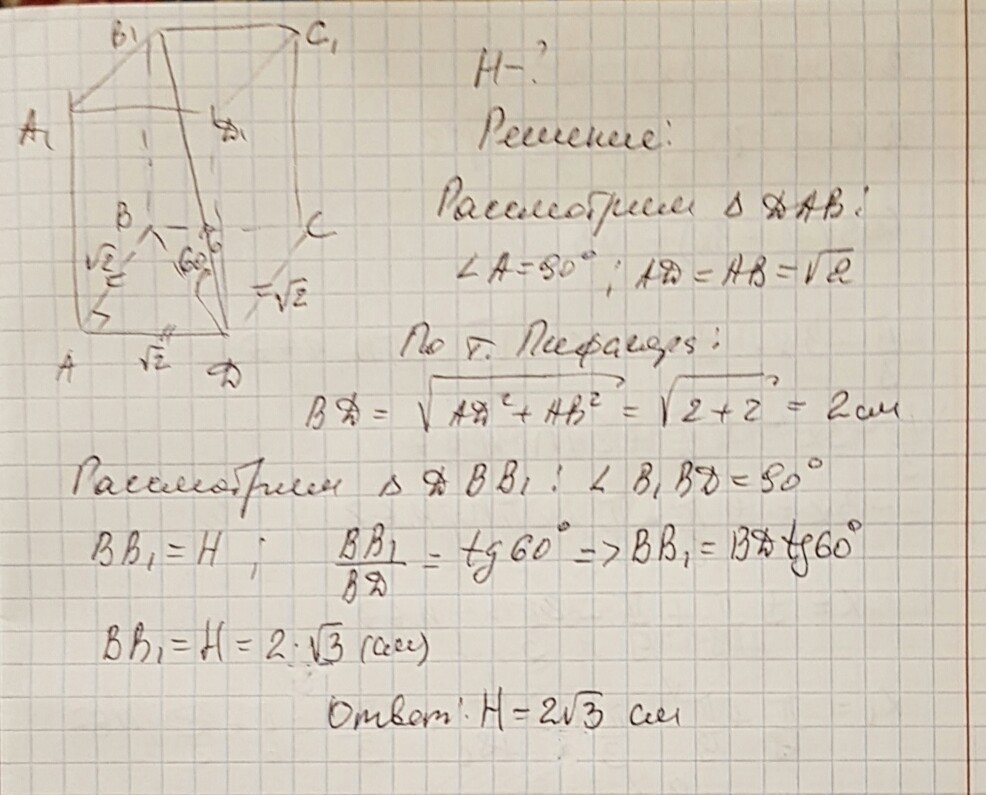 B₁ C₁
A₁ D₁
B C
√2 60° √2
A √2 D
H-?
Решение:
Рассмотрим Δ DAB:
∠A=90°; AD=AB=√2
По т. Пифагора:
BD = √(AD²+AB²) = √(2+2) = 2см
Рассмотрим Δ DBB₁: ∠B₁BD=90°
BB₁=H; BB₁/BD = tg60° => BB₁=BD tg60°
BB₁=H=2·√3 (см)
Ответ: H=2√3 см